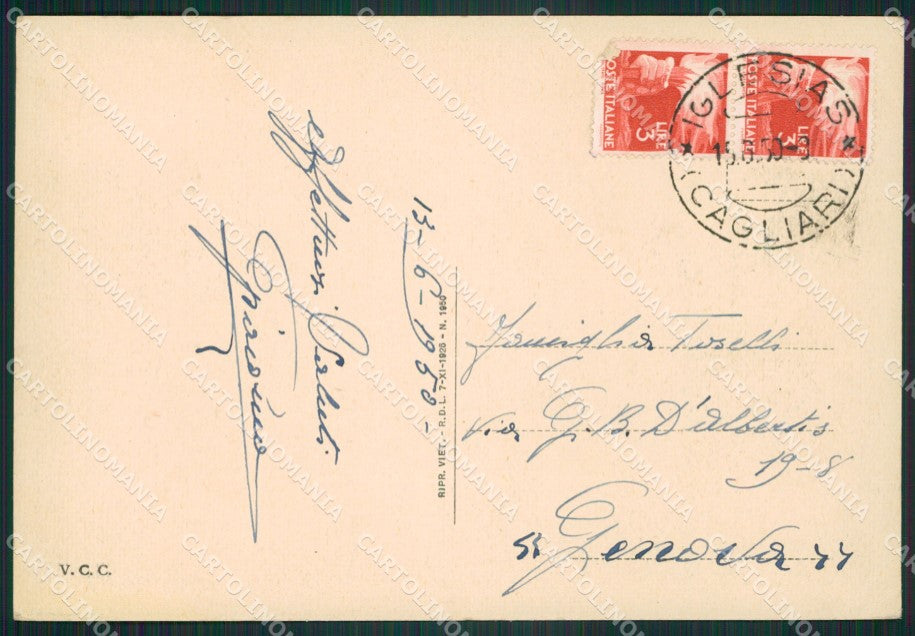 POSTE ITALIANE
LIRE 3
POSTE ITALIANE
LIRE 3
IGLESIAS
15.6.50-9
(CAGLIARI)
affettuosi saluti
13-6-1950-
RIPR. VIET. - R.D.L. 7-XI-1926 - N. 1950
Famiglia Toselli
Via G. B. D'Albertis
19-8
Genova
V. C. C.
CARTOLINOMANIA